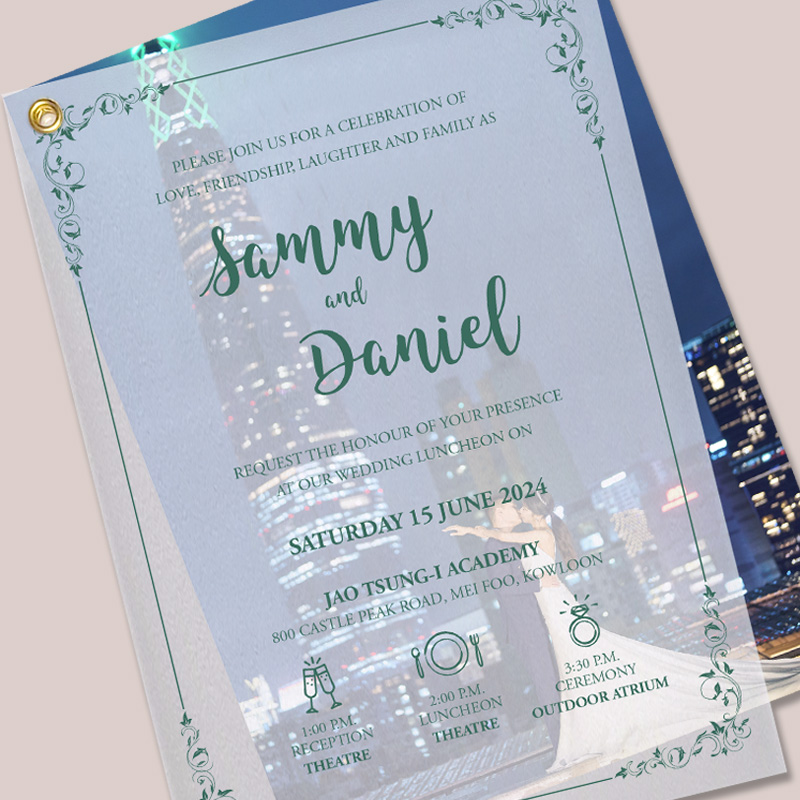 PLEASE JOIN US FOR A CELEBRATION OF
LOVE, FRIENDSHIP, LAUGHTER AND FAMILY AS
Sammy
and
Daniel
REQUEST THE HONOUR OF YOUR PRESENCE
AT OUR WEDDING LUNCHEON ON
SATURDAY 15 JUNE 2024
JAO TSUNG-I ACADEMY
800 CASTLE PEAK ROAD, MEI FOO, KOWLOON
1:00 P.M.
RECEPTION
THEATRE
2:00 P.M.
LUNCHEON
THEATRE
3:30 P.M.
CEREMONY
OUTDOOR ATRIUM